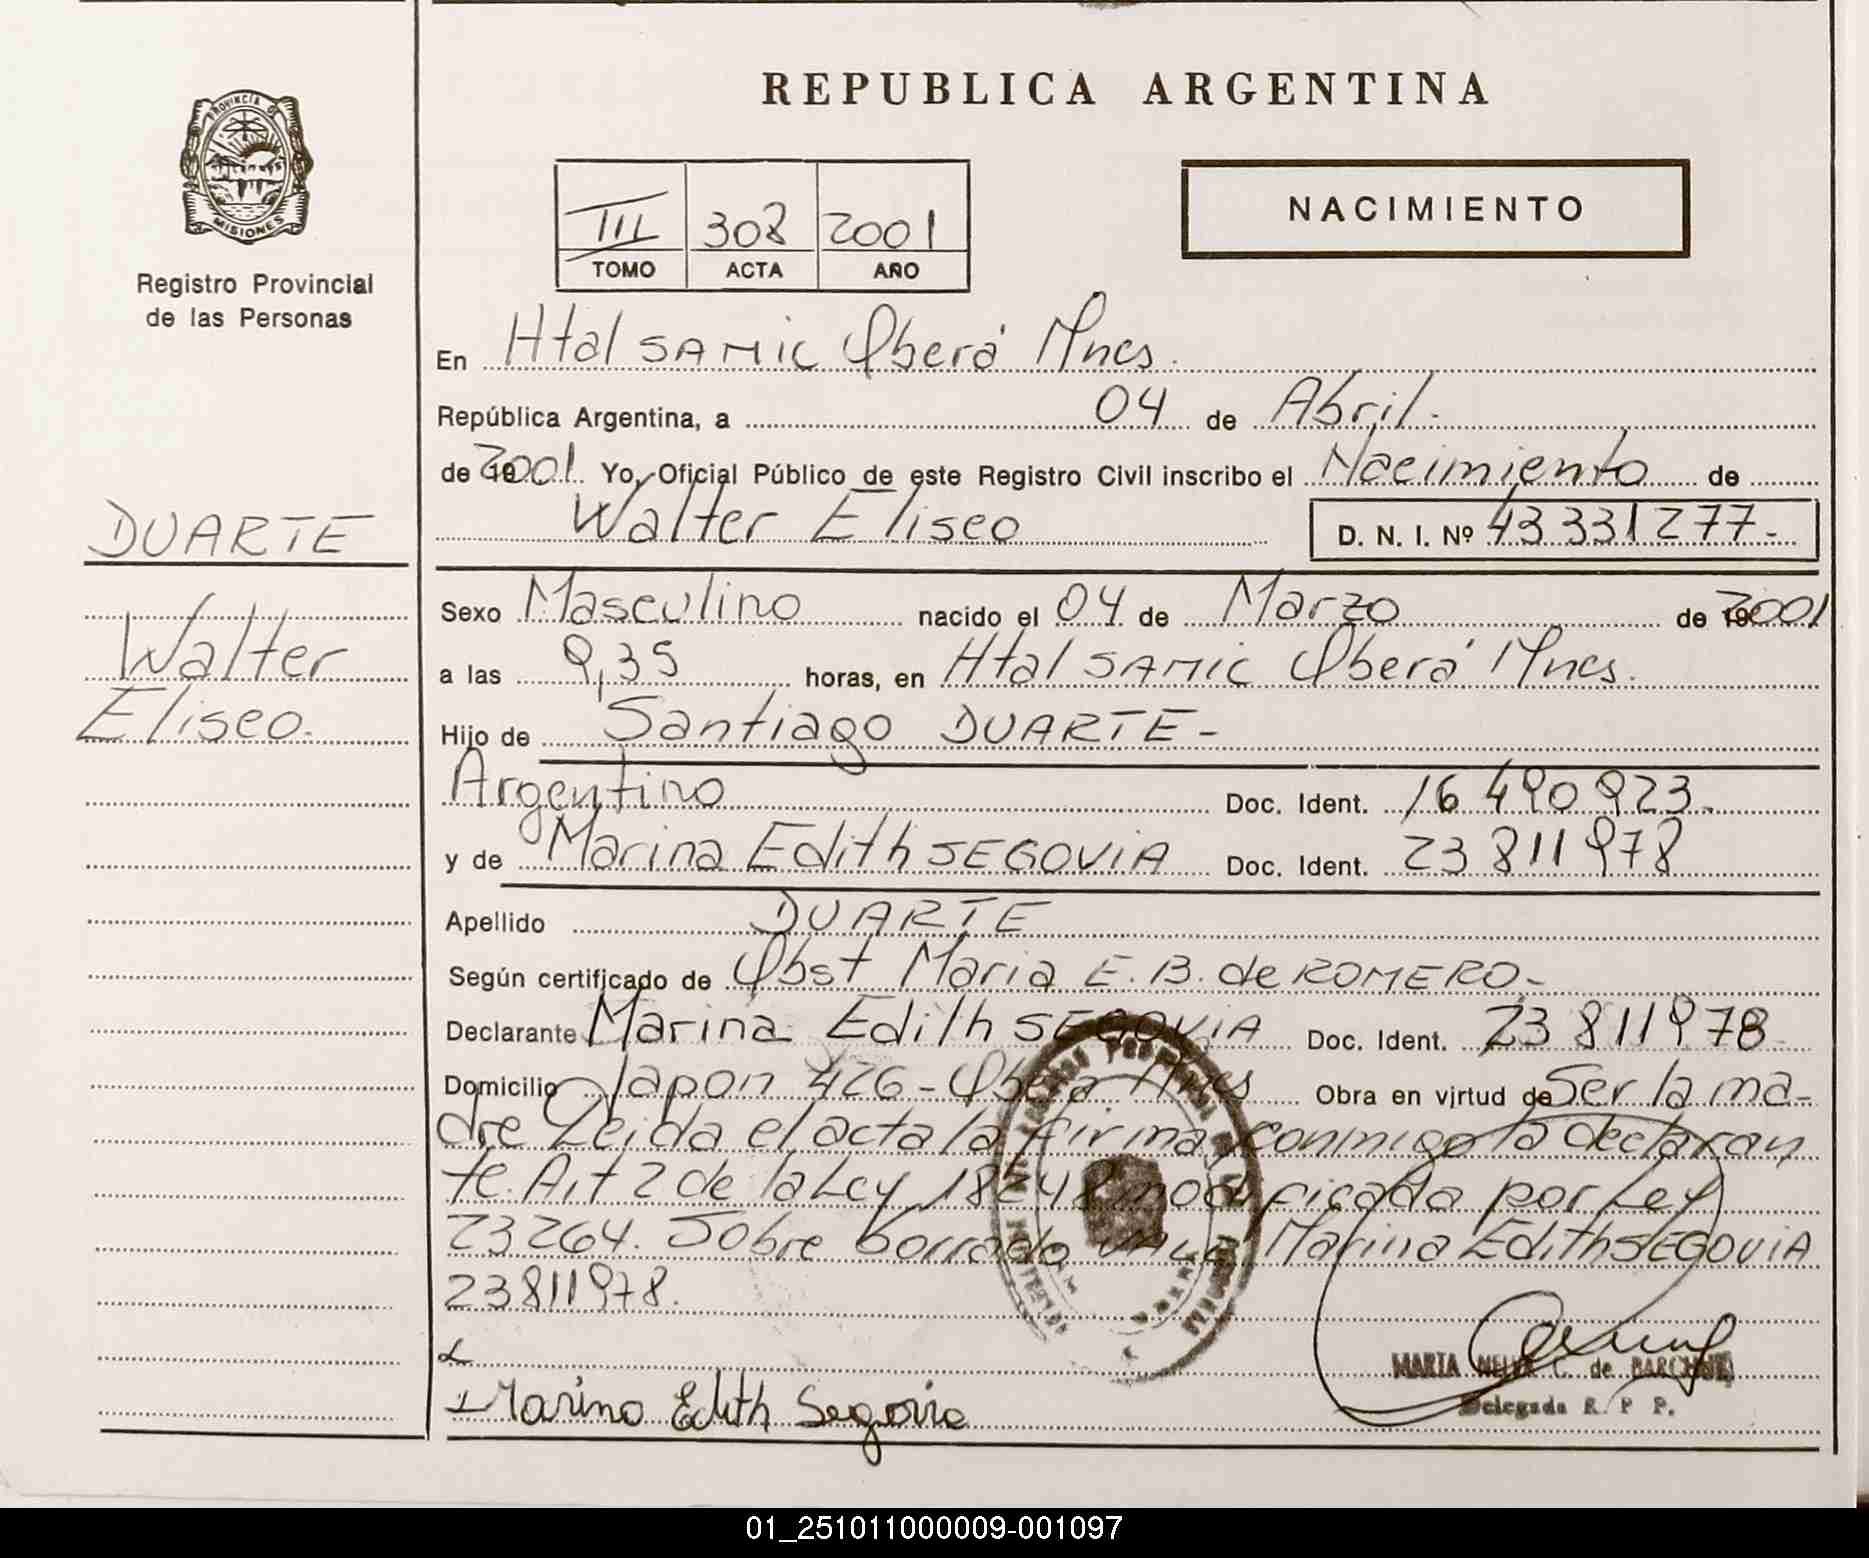 REPUBLICA ARGENTINA
PROVINCIA DE
MISIONES
Registro Provincial
de las Personas
III 308 2001
TOMO ACTA AÑO
NACIMIENTO
En Htal SAMIC Oberá Mnes.
República Argentina, a 04 de Abril.
de 2001 Yo, Oficial Público de este Registro Civil inscribo el Nacimiento de
Walter Eliseo D. N. I. Nº 43 331 277-
DUARTE
Walter
Eliseo.
Sexo Masculino nacido el 04 de Marzo de 2001
a las 9,35 horas, en Htal SAMIC Oberá Mnes.
Hijo de Santiago DUARTE-
Argentino Doc. Ident. 16 490 923.
y de Marina Edith SEGOVIA Doc. Ident. 23 811 978
Apellido DUARTE
Según certificado de Obst Maria E. B. de ROMERO-
Declarante Marina Edith SEGOVIA Doc. Ident. 23 811 978
Domicilio Japon 426- Oberá Mnes Obra en virtud de Ser la ma-
dre Leida el acta la firma conmigo la declaran
te. Art 2 de la Ley 18248 modificada por Ley
23264. Sobre borrado VALE Marina Edith SEGOVIA
23811978.
Marina Edith Segovia
MARIA C. de
Delegada R. P. P.
01_251011000009-001097